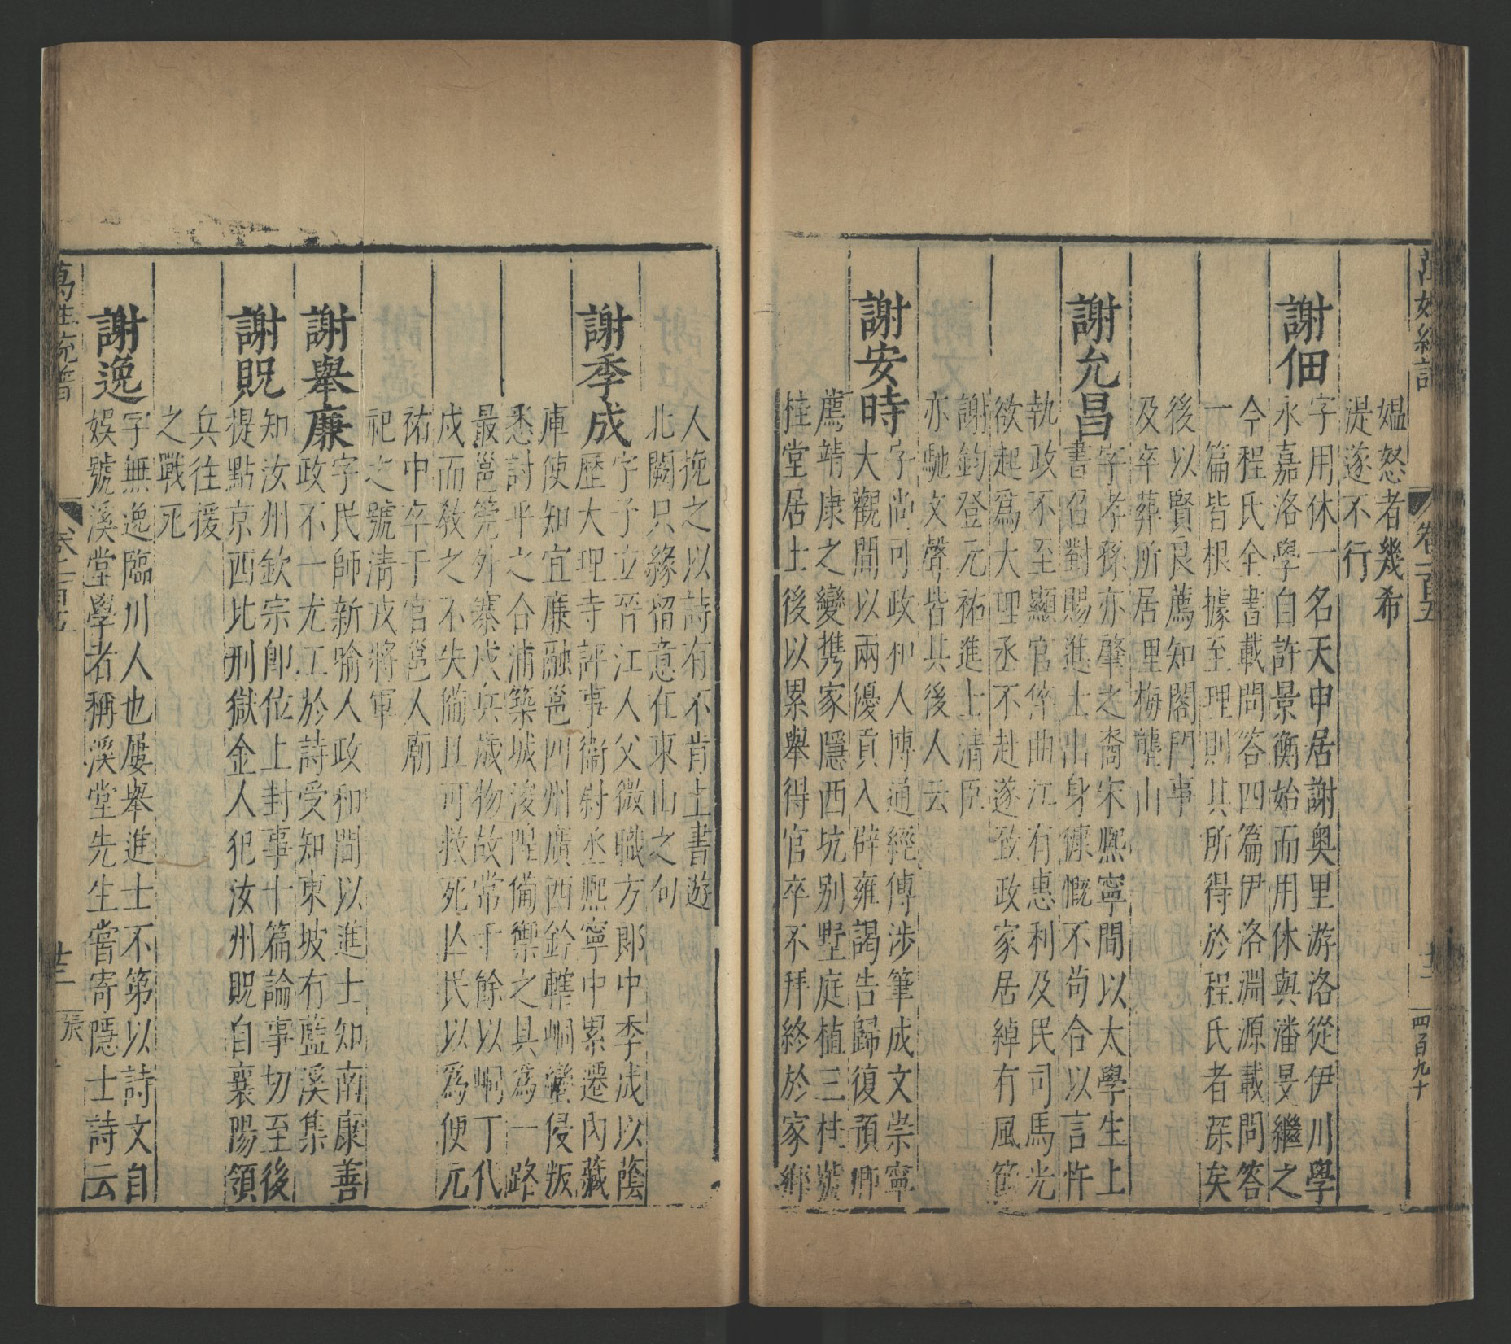 萬姓統譜
卷一百五
四百九十
媪怒者幾希
湜遂不行
謝佃
字用休一名天申居謝奥里游洛從伊川學
永嘉洛學自許景衡始而用休與潘旻繼之
今程氏全書載問答四篇伊洛淵源載問答
一篇皆根據至理則其所得於程氏者深矣
後以賢良薦知閤門事
及卒葬所居里梅嶴山
謝允昌
字孝孫亦肇之裔宋熙寧間以太學生上
書召對賜進士出身慷慨不苟合以言忤
執政不至顯官倅曲江有惠利及民司馬光
欲起爲大理丞不赴遂致政家居綽有風節
謝鈞登元祐進士清臣
亦馳文聲皆其後人云
謝安時
字尚可政和人博通經傅涉筆成文崇寧
大觀間以兩優貢入辟雍謁告歸復預鄉
薦靖康之變携家隱西坑别墅庭植三桂號
桂堂居士後以累舉得官卒不拜終於家鄉
人挽之以詩有不肯上書遊
北闕只緣留意在東山之句
謝季成
字子立晉江人父微職方郎中季成以蔭
歷大理寺評事衛尉丞熙寧中累遷内藏
庫使知宜廉融邕四州廣西鈐轄峒蠻侵叛
悉討平之合浦築城浚隍備禦之具爲一路
最邕筦外寨戍兵歲物故常千餘以峒丁代
戍而教之不失備且可救死亾民以爲便元
祐中卒于官邕人廟
祀之號清戎將軍
謝舉廉
字民師新喻人政和間以進士知南康善
政不一尤工於詩受知東坡有藍溪集
謝貺
知汝州欽宗即位上封事十篇論事切至後
提點京西北刑獄金人犯汝州貺自襄陽領
兵往援
之戰死
謝逸
字無逸臨川人也屢舉進士不第以詩文自
娛號溪堂學者稱溪堂先生嘗寄隱士詩云
萬姓統譜